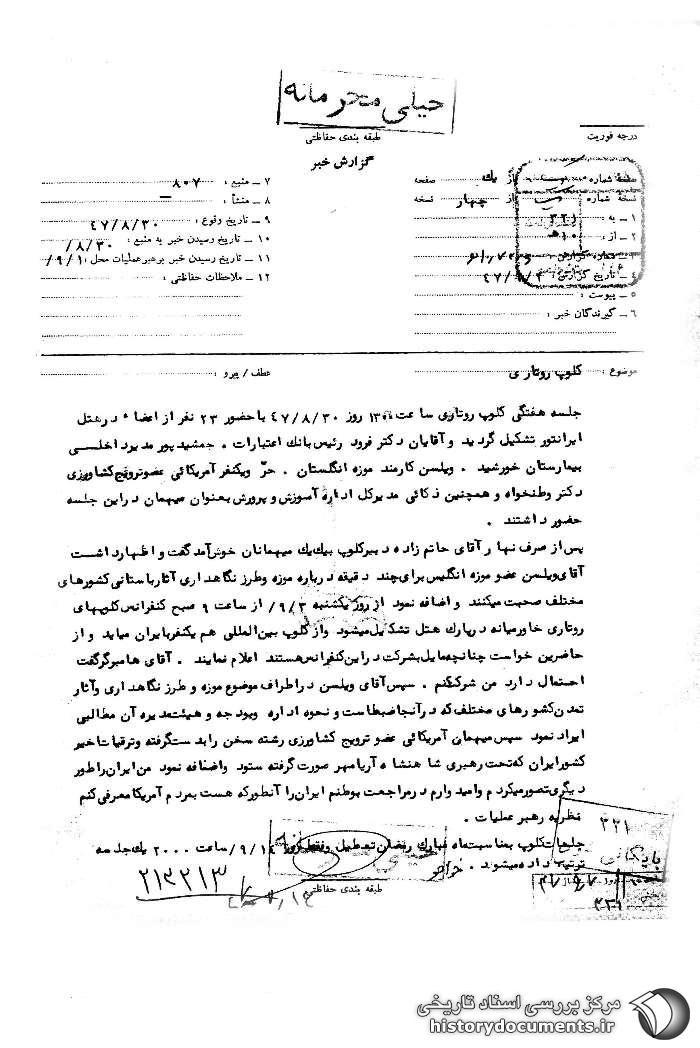 خیلی محرمانه
طبقه بندی حفاظتی
گزارش خبر
درجه فوریت
صفحه شماره از یك صفحه
نسخه شماره از چهار نسخه
۱ ـ به : ۳۲۱
۲ ـ از : ۱۰ ه
۳ ـ شماره گزارش :
۴ ـ تاریخ گزارش :
۵ ـ پیوست :
۶ ـ گیرندگان خبر :
۷ ـ منبع : ۸۰۷
۸ ـ منشأ : ـ
۹ ـ تاریخ وقوع : ۴۷/۸/۳۰
۱۰ ـ تاریخ رسیدن خبر به منبع : ۸/۳۰/
۱۱ ـ تاریخ رسیدن خبر برهبر عملیات محل : ۹/۱/
۱۲ ـ ملاحظات حفاظتی :
موضوع : کلوپ روتاری
عطف / پیرو :
جلسه هفتگی کلوپ روتاری ساعت روز ۴۷/۸/۳۰ با حضور ۲۳ نفر از اعضاء در هتل
ایرانتور تشکیل گردید و آقایان دکتر فرود رئیس بانك اعتبارات . جمشید پور مدیر داخلی
بیمارستان خورشید . ویلسن کارمند موزه انگلستان . حرّ ویکنفر آمریکائی عضو ترویج کشاورزی
دکتر وطنخواه و همچنین ذکائی مدیر کل اداره آموزش و پرورش بعنوان میهمان در این جلسه
حضور داشتند .
پس از صرف نهار آقای حاتم زاده دبیر کلوپ بیك یك میهمانان خوش آمد گفت و اظهار داشت
آقای ویلسن عضو موزه انگلیس برای چند دقیقه درباره موزه وطرز نگاهداری آثار باستانی کشورهای
مختلف صحبت میکنند و اضافه نمود از روز یکشنبه ۹/۳/ از ساعت ۹ صبح کنفرانس کلوپهای
روتاری خاورمیانه در پارك هتل تشکیل میشود واز کلوپ بین المللی هم یکنفر بایران میاید و از
حاضرین خواست چنانچه مایل بشرکت در این کنفرانس هستند اعلام نمایند . آقای هامبرگر گفت
احتمال دارد من شرکت کنم . سپس آقای ویلسن در اطراف موضوع موزه و طرز نگاهداری وآثار
تمدن کشورهای مختلف که در آنجا ضبط است و نحوه اداره وبودجه و هیئت مدیره آن مطالبی
ایراد نمود سپس میهمان آمریکائی عضو ترویج کشاورزی رشته سخن را بدست گرفته وترقیات اخیر
کشور ایران که تحت رهبری شاهنشاه آریامهر صورت گرفته ستود واضافه نمود من ایران را طور
دیگری تصور میکردم وامیدوارم در مراجعت بوطنم ایران را آنطور که هست بمردم آمریکا معرفی کنم
نظریه رهبر عملیات .
جلسات کلوپ بمناسبت ماه مبارك رمضان تعطیل وفقط روز ۹/۱۴/ ساعت ۲۰۰۰ یك جلسه
ترتیب داده میشود .
طبقه بندی حفاظتی
۲۱۳۲۱۳
۳۲۱
بایگانی
۳۲۱
مرکز بررسی اسناد تاریخی
historydocuments.ir